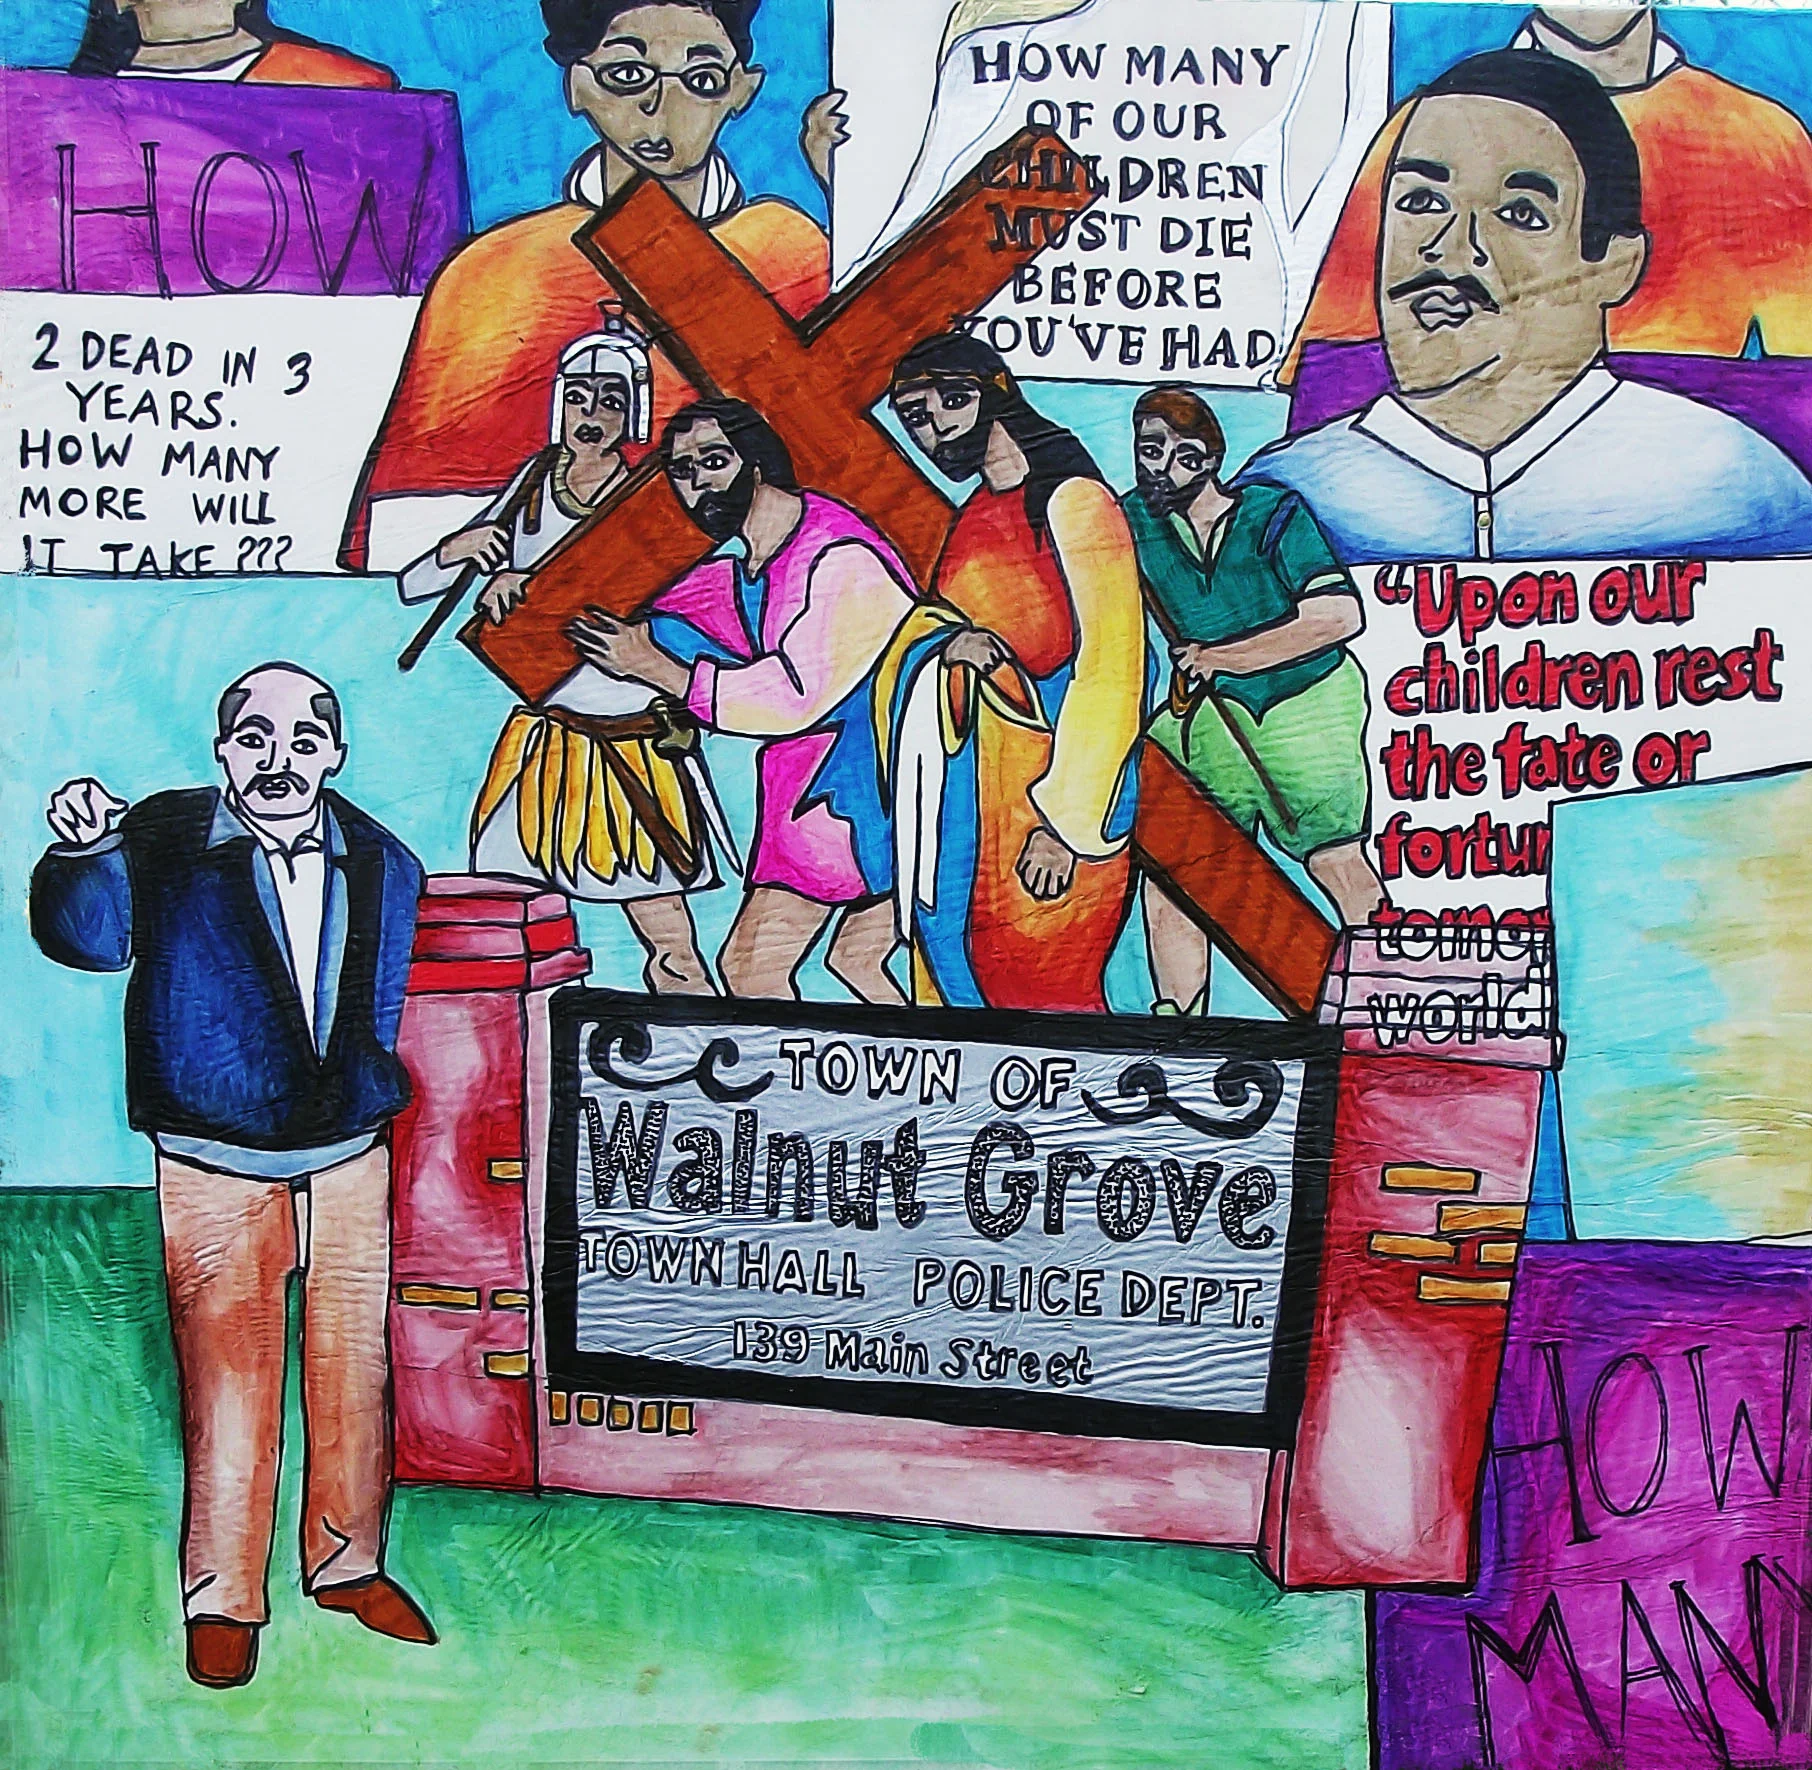 HOW
2 DEAD IN 3
YEARS.
HOW MANY
MORE WILL
IT TAKE ???
HOW MANY
OF OUR
CHILDREN
MUST DIE
BEFORE
YOU'VE HAD
"Upon our
children rest
the fate or
fortun
tomor
world
TOWN OF
Walnut Grove
TOWN HALL POLICE DEPT.
139 Main Street
HOW
MANY